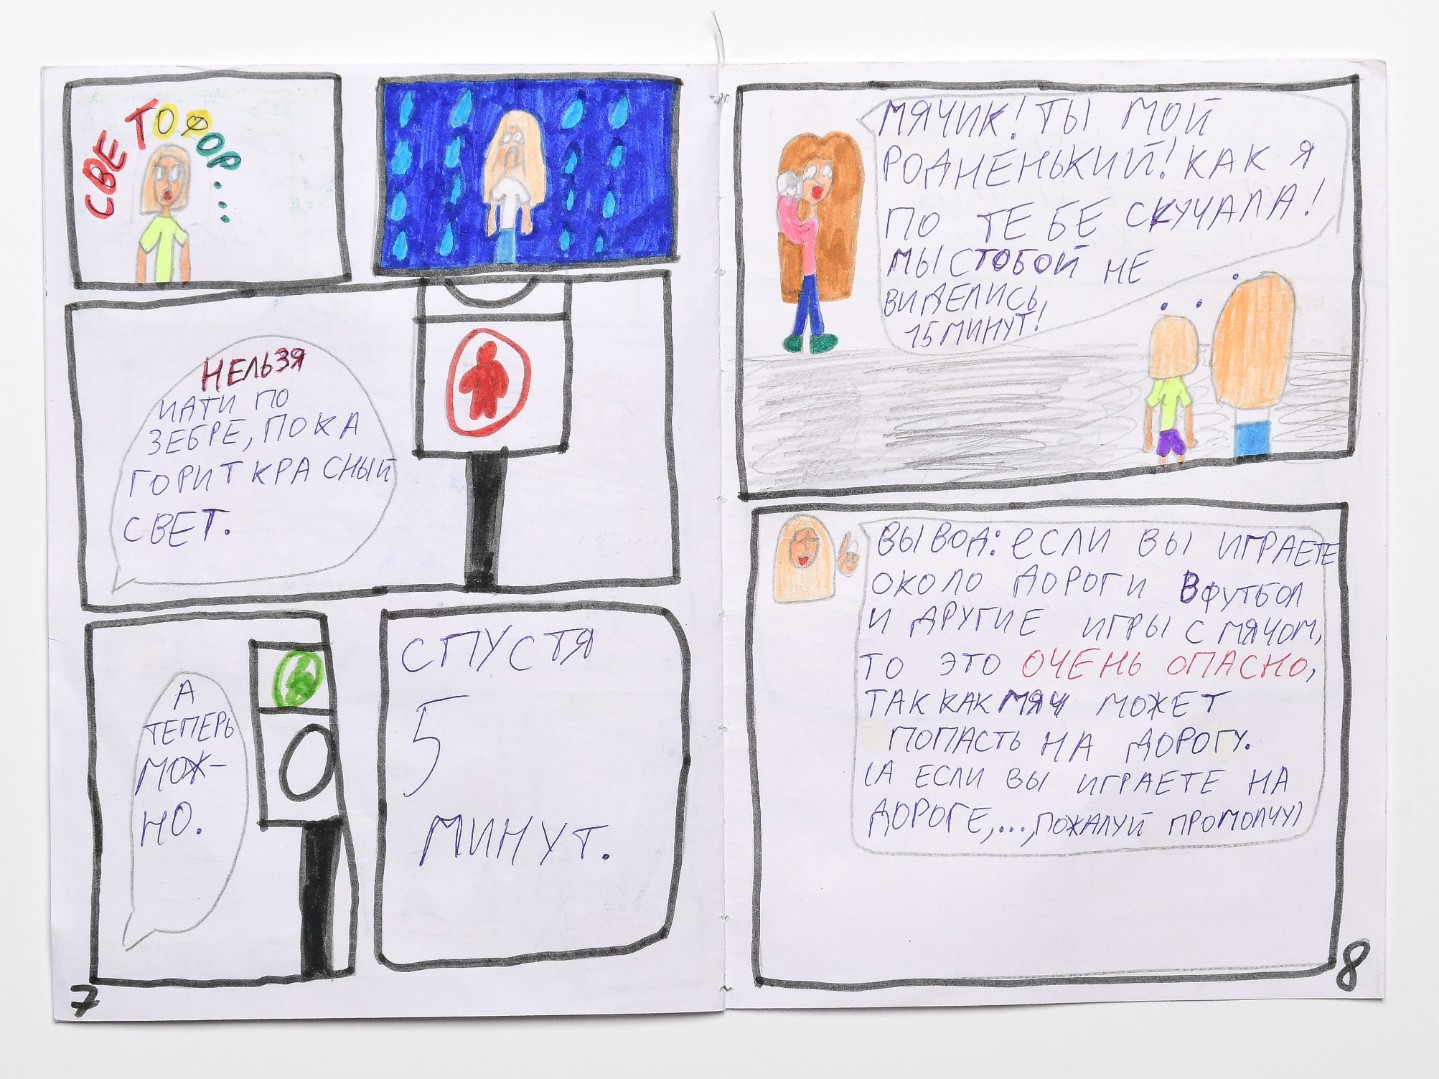 СВЕТОФОР....
НЕЛЬЗЯ
ИДТИ ПО
ЗЕБРЕ, ПОКА
ГОРИТ КРАСНЫЙ
СВЕТ.
А
ТЕПЕРЬ
МОЖ-
НО.
СПУСТЯ
5
МИНУТ.
7
МЯЧИК! ТЫ МОЙ
РОДНЕНЬКИЙ! КАК Я
ПО ТЕБЕ СКУЧАЛА!
МЫ СТОБОЙ НЕ
ВИДЕЛИСЬ
15 МИНУТ!
...
ВЫВОД: ЕСЛИ ВЫ ИГРАЕТЕ
ОКОЛО ДОРОГИ В ФУТБОЛ
И ДРУГИЕ ИГРЫ С МЯЧОМ,
ТО ЭТО ОЧЕНЬ ОПАСНО,
ТАК КАК МЯЧ МОЖЕТ
ПОПАСТЬ НА ДОРОГУ.
(А ЕСЛИ ВЫ ИГРАЕТЕ НА
ДОРОГЕ,...,ПОЖАЛУЙ ПРОМОЛЧУ)
8